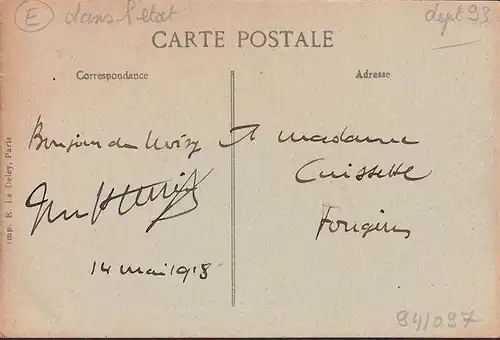 E dans l'état
dept 93
CARTE POSTALE
Correspondance
Adresse
Bonjour de Noisy
à madame
Cuissette
Fougères
14 mai 1918
94/097
imp. E. Le Deley, Paris